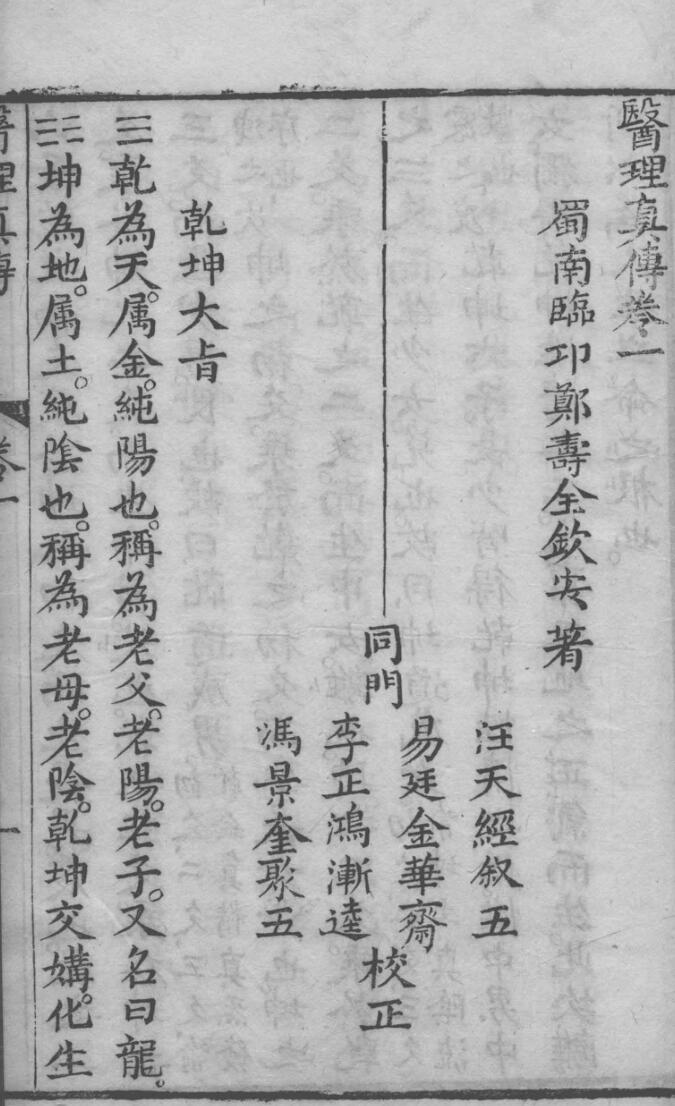 醫理真傳卷一
蜀南臨邛鄭壽全欽安著
汪天經叙五
同門
易廷金華齋
李正鴻漸逵
馮景奎聚五
校正
乾坤大旨
☰乾為天。属金。純陽也。稱為老父。老陽。老子。又名曰龍。
☷坤為地。属土。純陰也。稱為老母。老陰。乾坤交媾。化生
醫理真傳
卷一
一